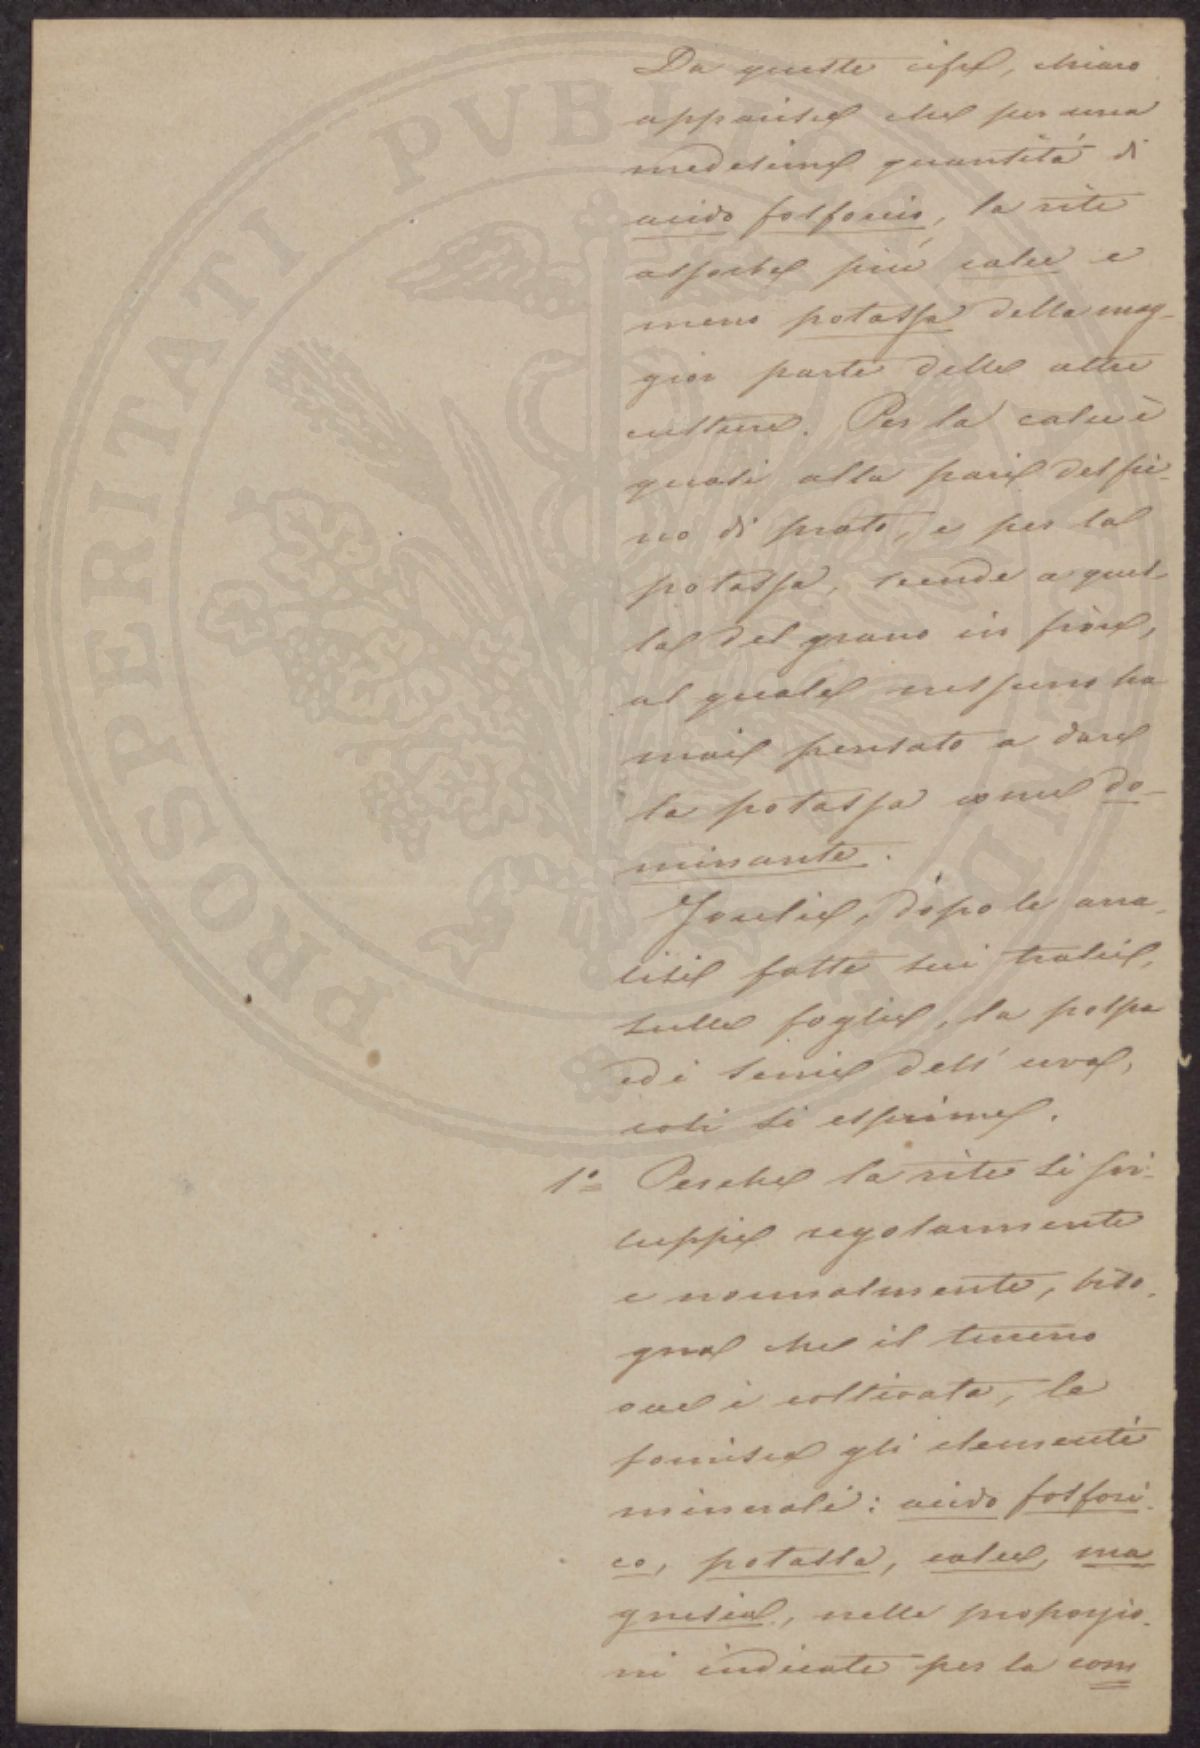 Da queste cifre, chiaro
apparisce che per una
medesima quantità di
acido fosforico, la vite
assorbe più calce e
meno potassa della mag-
gior parte delle altre
culture. Per la calce è
quasi alla pari del fie-
no di prato, e per la
potassa, scende a quel-
la del grano in fiore,
al quale nessuno ha
mai pensato a dare
la potassa come do-
minante.
Joulie, dopo le ana-
lisi fatte sui tralci,
sulle foglie, la polpa
ed i semi dell'uva,
così si esprime.
1º Perché la vite si svi-
luppi regolarmente
e normalmente, biso-
gna che il terreno
ove è coltivata, le
fornisca gli elementi
minerali: acido fosfori-
co, potassa, calce, ma
gnesia, nelle proporzio-
ni indicate per la com
PROSPERITATI PVBLICAE